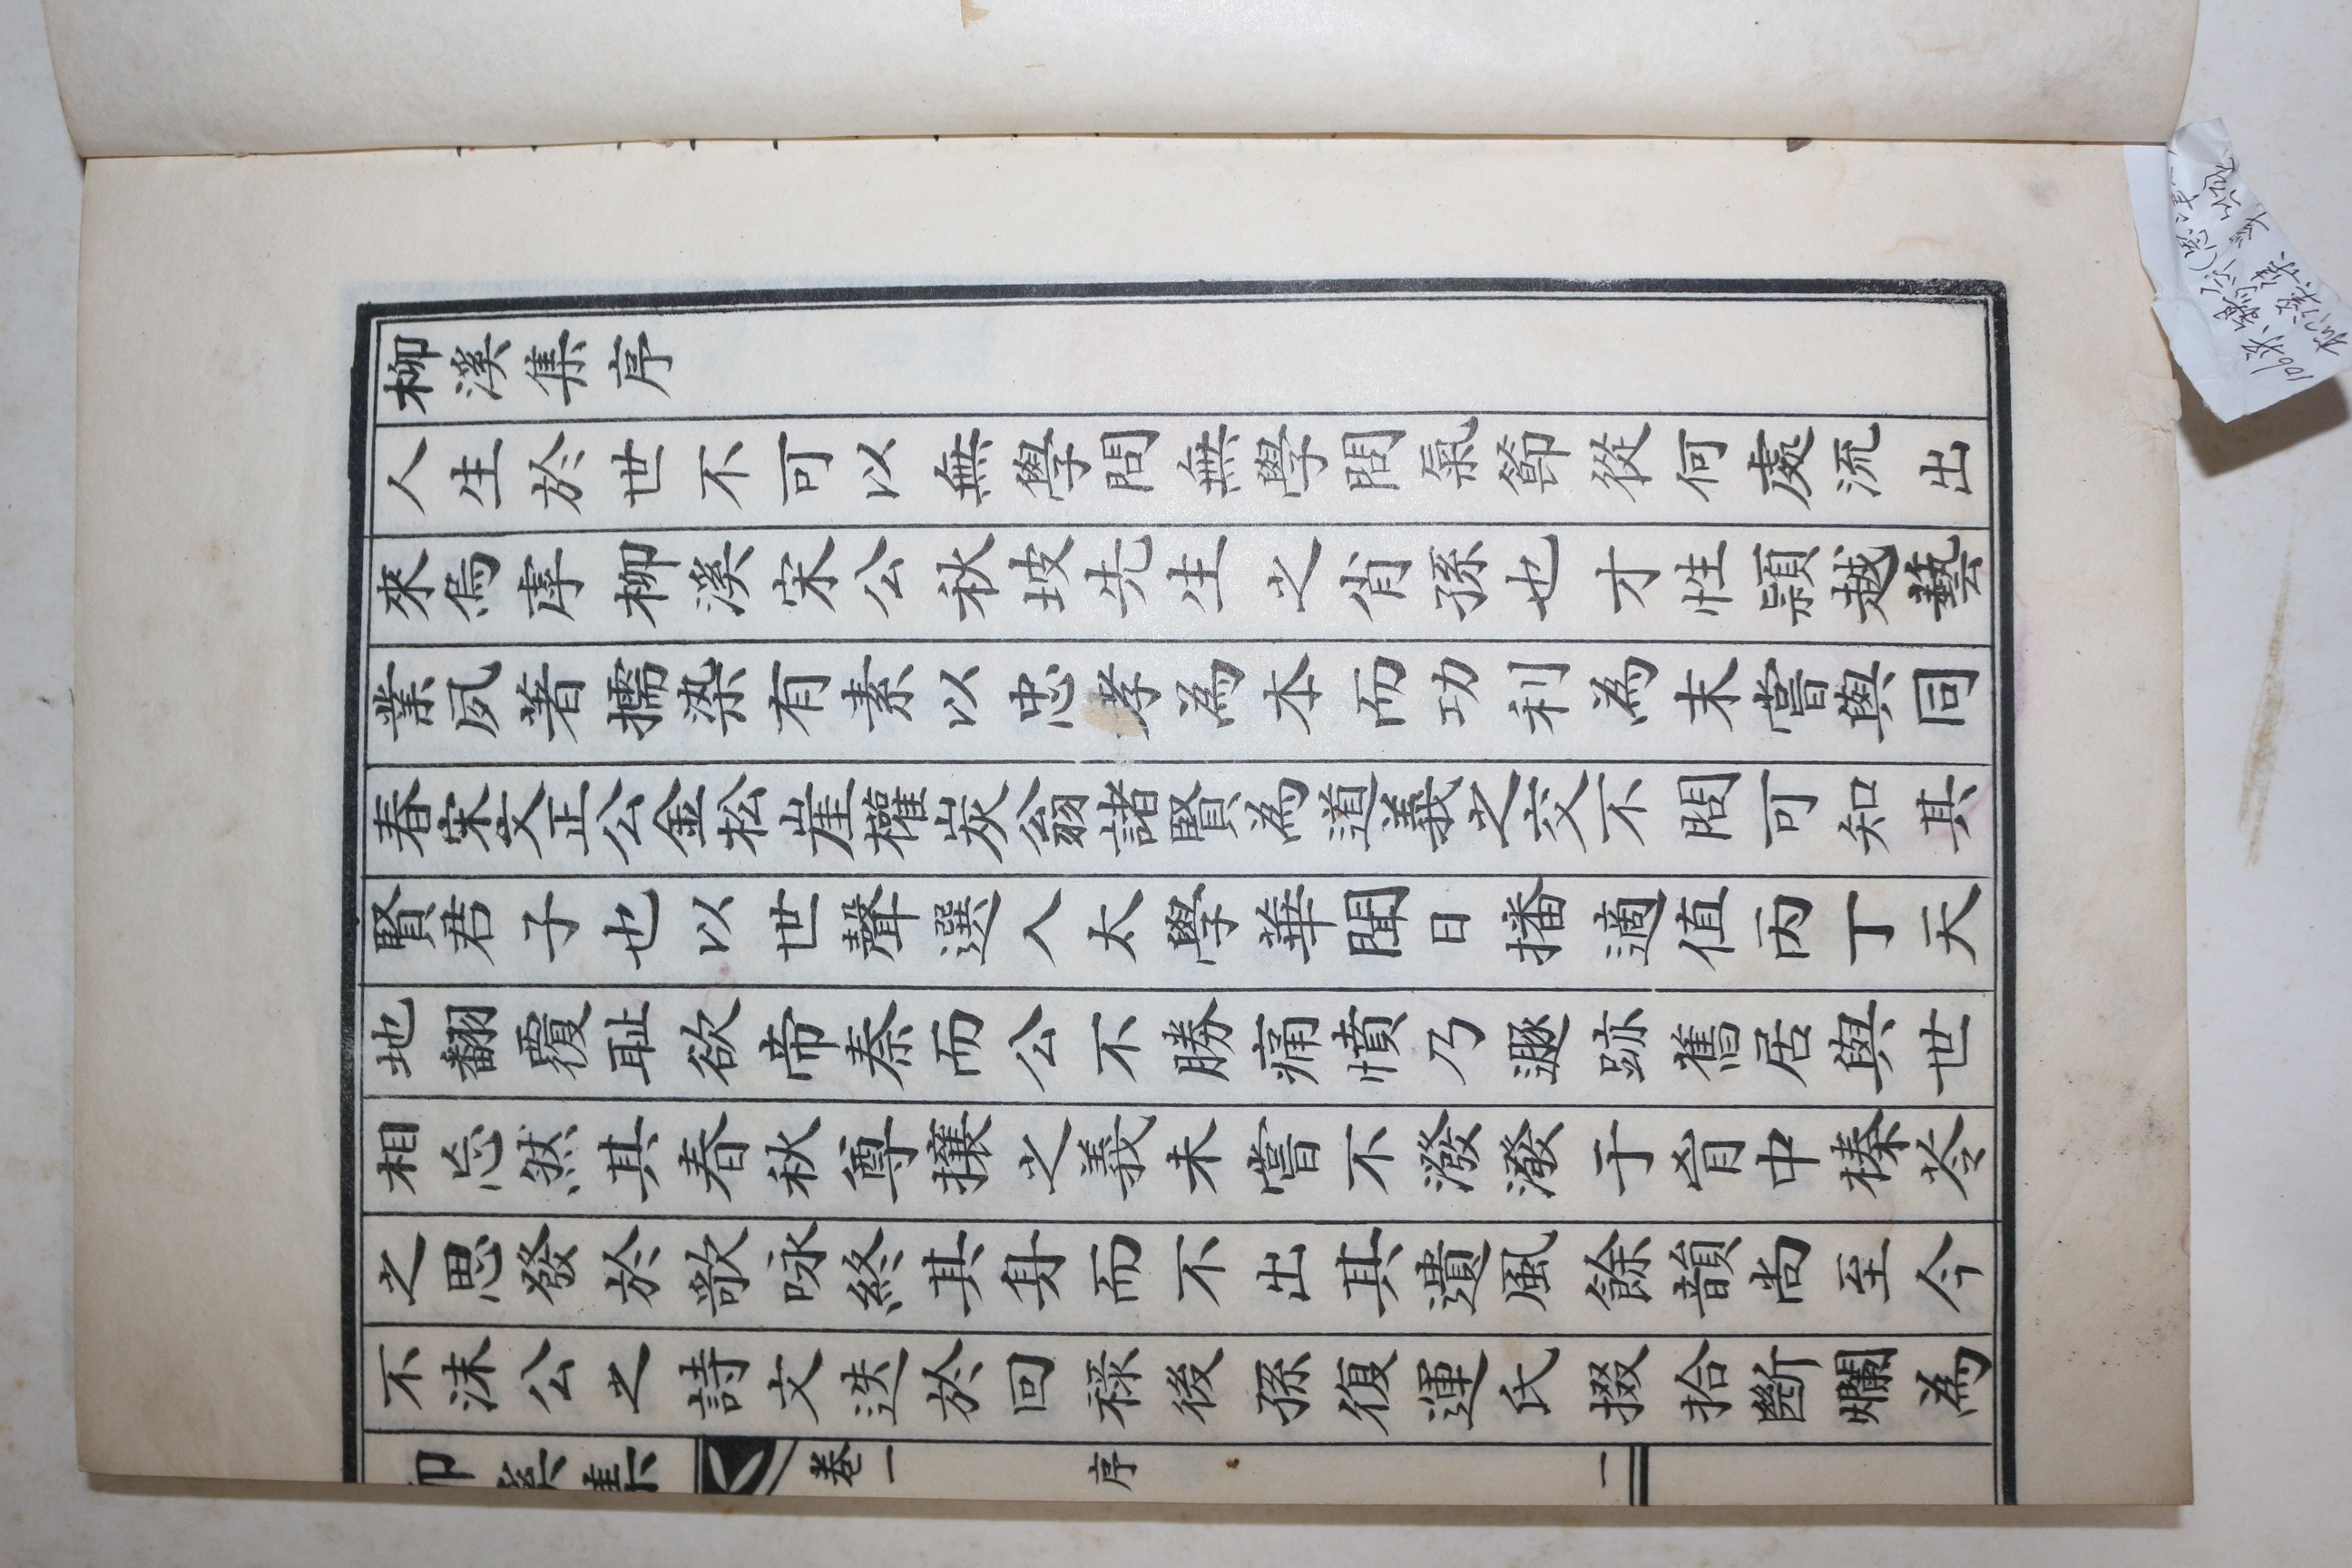 柳溪集序
人生於世不可以無學問無學問氣節從何處流出
來烏虖柳溪宋公秋坡先生之肖孫也才性穎越藝
業夙著擩染有素以忠孝為本而功利為末嘗與同
春宋文正公金松崖權炭翁諸賢為道義之交不問可知其
賢君子也以世聲選入太學華聞日播適值丙丁天
地翻覆耻欲帝秦而公不勝痛憤乃遯跡舊居與世
相忘然其春秋尊攘之義未嘗不潑潑于胷中榛苓
之思發於歌咏終其身而不出其遺風餘韻尚至今
不沫公之詩文迭於回祿後孫復運氏掇拾斷爛為
柳溪集 卷一 序 一